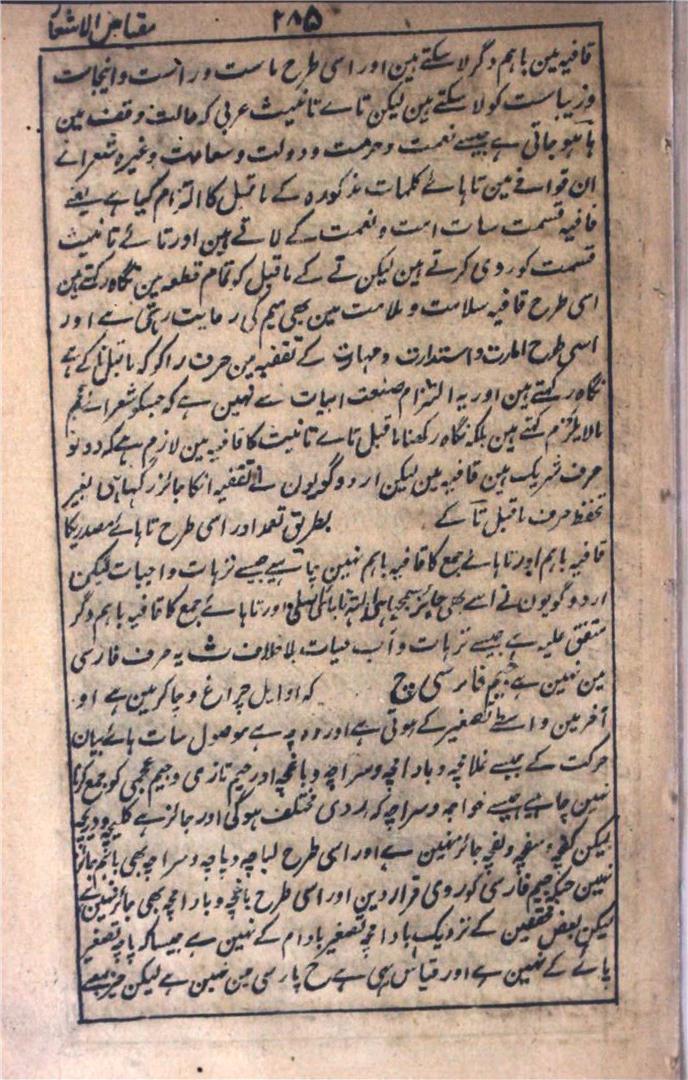 ۲۸۵ مقیاس الاشعار
قافیہ مین باہم دگر لا سکتے ہین اور اسی طرح ماست و راست و اینجاست
و زیباست کو لا سکتے ہین لیکن تاے تانیث عربی کہ حالت وقف مین
ہا ہو جاتی ہے جیسے نعمت و حرمت و دولت و سعادت وغیرہ شعراے
ان قوافے مین تا ہاے کلمات مذکورہ کے ماقبل کا التزام کیا ہے یعنے
قافیہ قسمت سات امت و نعمت کے لاتے ہین اور تاے تانیث
قسمت کو روی کرتے ہین لیکن تے کے ماقبل کو تمام قطعہ مین نگاہ رکھتے ہین
اسی طرح قافیہ سلامت و ملامت مین بھی میم کی رعایت رہتی ہے اور
اسی طرح امارت و استدارت و مہارت کے تقفیہ مین حرف را کو کہ ماقبل تا کے ہے
نگاہ رکھتے ہین اور یہ التزام صنعت ابیات سے نہین ہے کہ جسکو شعراے عجم
مالا یلزم کہتے ہین بلکہ نگاہ رکھنا ماقبل تاے تانیث کا قافیہ مین لازم ہے کہ دونو
حرف شریک ہین قافیہ مین لیکن اردو گویون نے تقفیہ انکا جائز رکھا ہی بغیر
تحفظ حرف ماقبل تا کے بطریق تعمد اور اسی طرح تا ہاے مصدریکا
قافیہ باہم اور تا ہاے جمع کا قافیہ باہم نہین چاہیے جیسے نزہات و احیات لیکن
اردو گویون نے اسے بھی جائز سمجھا ہی البتہ تاے اصلی اور تا ہاے جمع کا قافیہ باہم دگر
متفق علیہ ہے جیسے نزہات و آب حیات بلا خلاف ث یہ حرف فارسی
مین نہین ہے جیم فارسی چ کہ اوایل چراغ و چاکر مین ہے او
آخر مین واسطے تصغیر کے ہوتی ہے اور وہ چہ ہے موصول سات ہاے بیان
حرکت کے جیسے غلامچہ و بادامچہ و سراچہ و باغچہ اور جیم تازی و جیم عجمی کو جمع کرنا
نہین چاہیے جیسے خواجہ و سراچہ کہ روی مختلف ہوگی اور جائز ہے کلیچہ و دریچہ
لیکن کفچہ و سفچہ و لفچہ جائز نہین ہے اور اسی طرح لباچہ و پاچہ و سراچہ بھی جائز
نہین جبکہ جیم فارسی کو روی قرار دین اور اسی طرح باغچہ و بادامچہ بھی جائز نہین ہے
لیکن بعض محققین کے نزدیک بادامچہ تصغیر بادام کے نہین ہے جیسا کہ پاچہ تصغیر
پاے کے نہین ہے اور قیاس یہی ہے ح پارسی مین نہین ہے لیکن